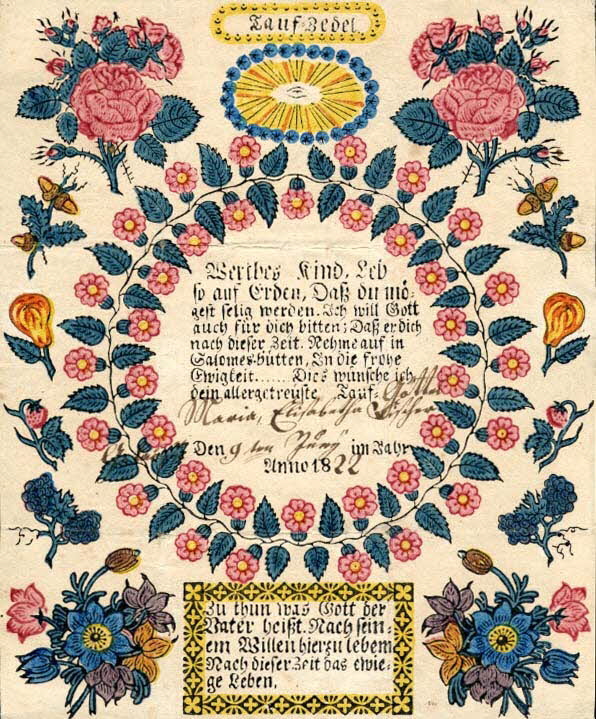 Tauf-Zedel
Werthes Kind, Leb
so auf Erden, Daß du mö-
gest selig werden. Ich will Gott
auch für dich bitten; Daß er dich
nach dieser Zeit. Nehme auf in
Salomes-hütten, In die frohe
Ewigkeit...... Dies wünsche ich
dein allergetreuste, Tauf-Gotte
Maria, Elisabetha Fischer
Den 9ten Juny im Jahr
Anno 1822
Zu thun was Gott der
Vater heißt. Nach sein-
em Willen hierzu lebem
Nach dieser Zeit das ewie-
ge Leben.